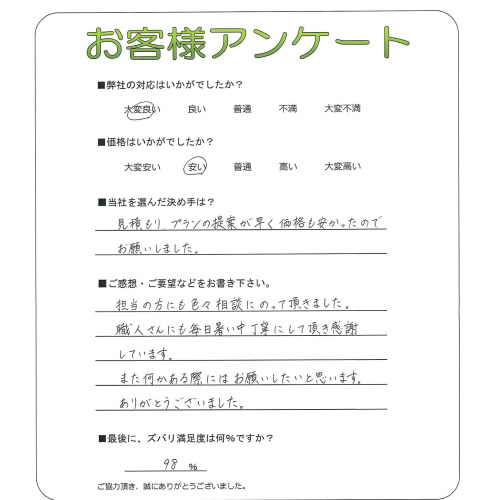 お客様アンケート
■弊社の対応はいかがでしたか？
大変良い 良い 普通 不満 大変不満
■価格はいかがでしたか？
大変安い 安い 普通 高い 大変高い
■当社を選んだ決め手は？
見積もり、プランの提案が早く価格も安かったので
お願いしました。
■ご感想・ご要望などをお書き下さい。
担当の方にも色々相談にのって頂きました。
職人さんにも毎日暑い中丁寧にして頂き感謝
しています。
また何かある際にはお願いしたいと思います。
ありがとうございました。
■最後に、ズバリ満足度は何%ですか？
98 %
ご協力頂き、誠にありがとうございました。